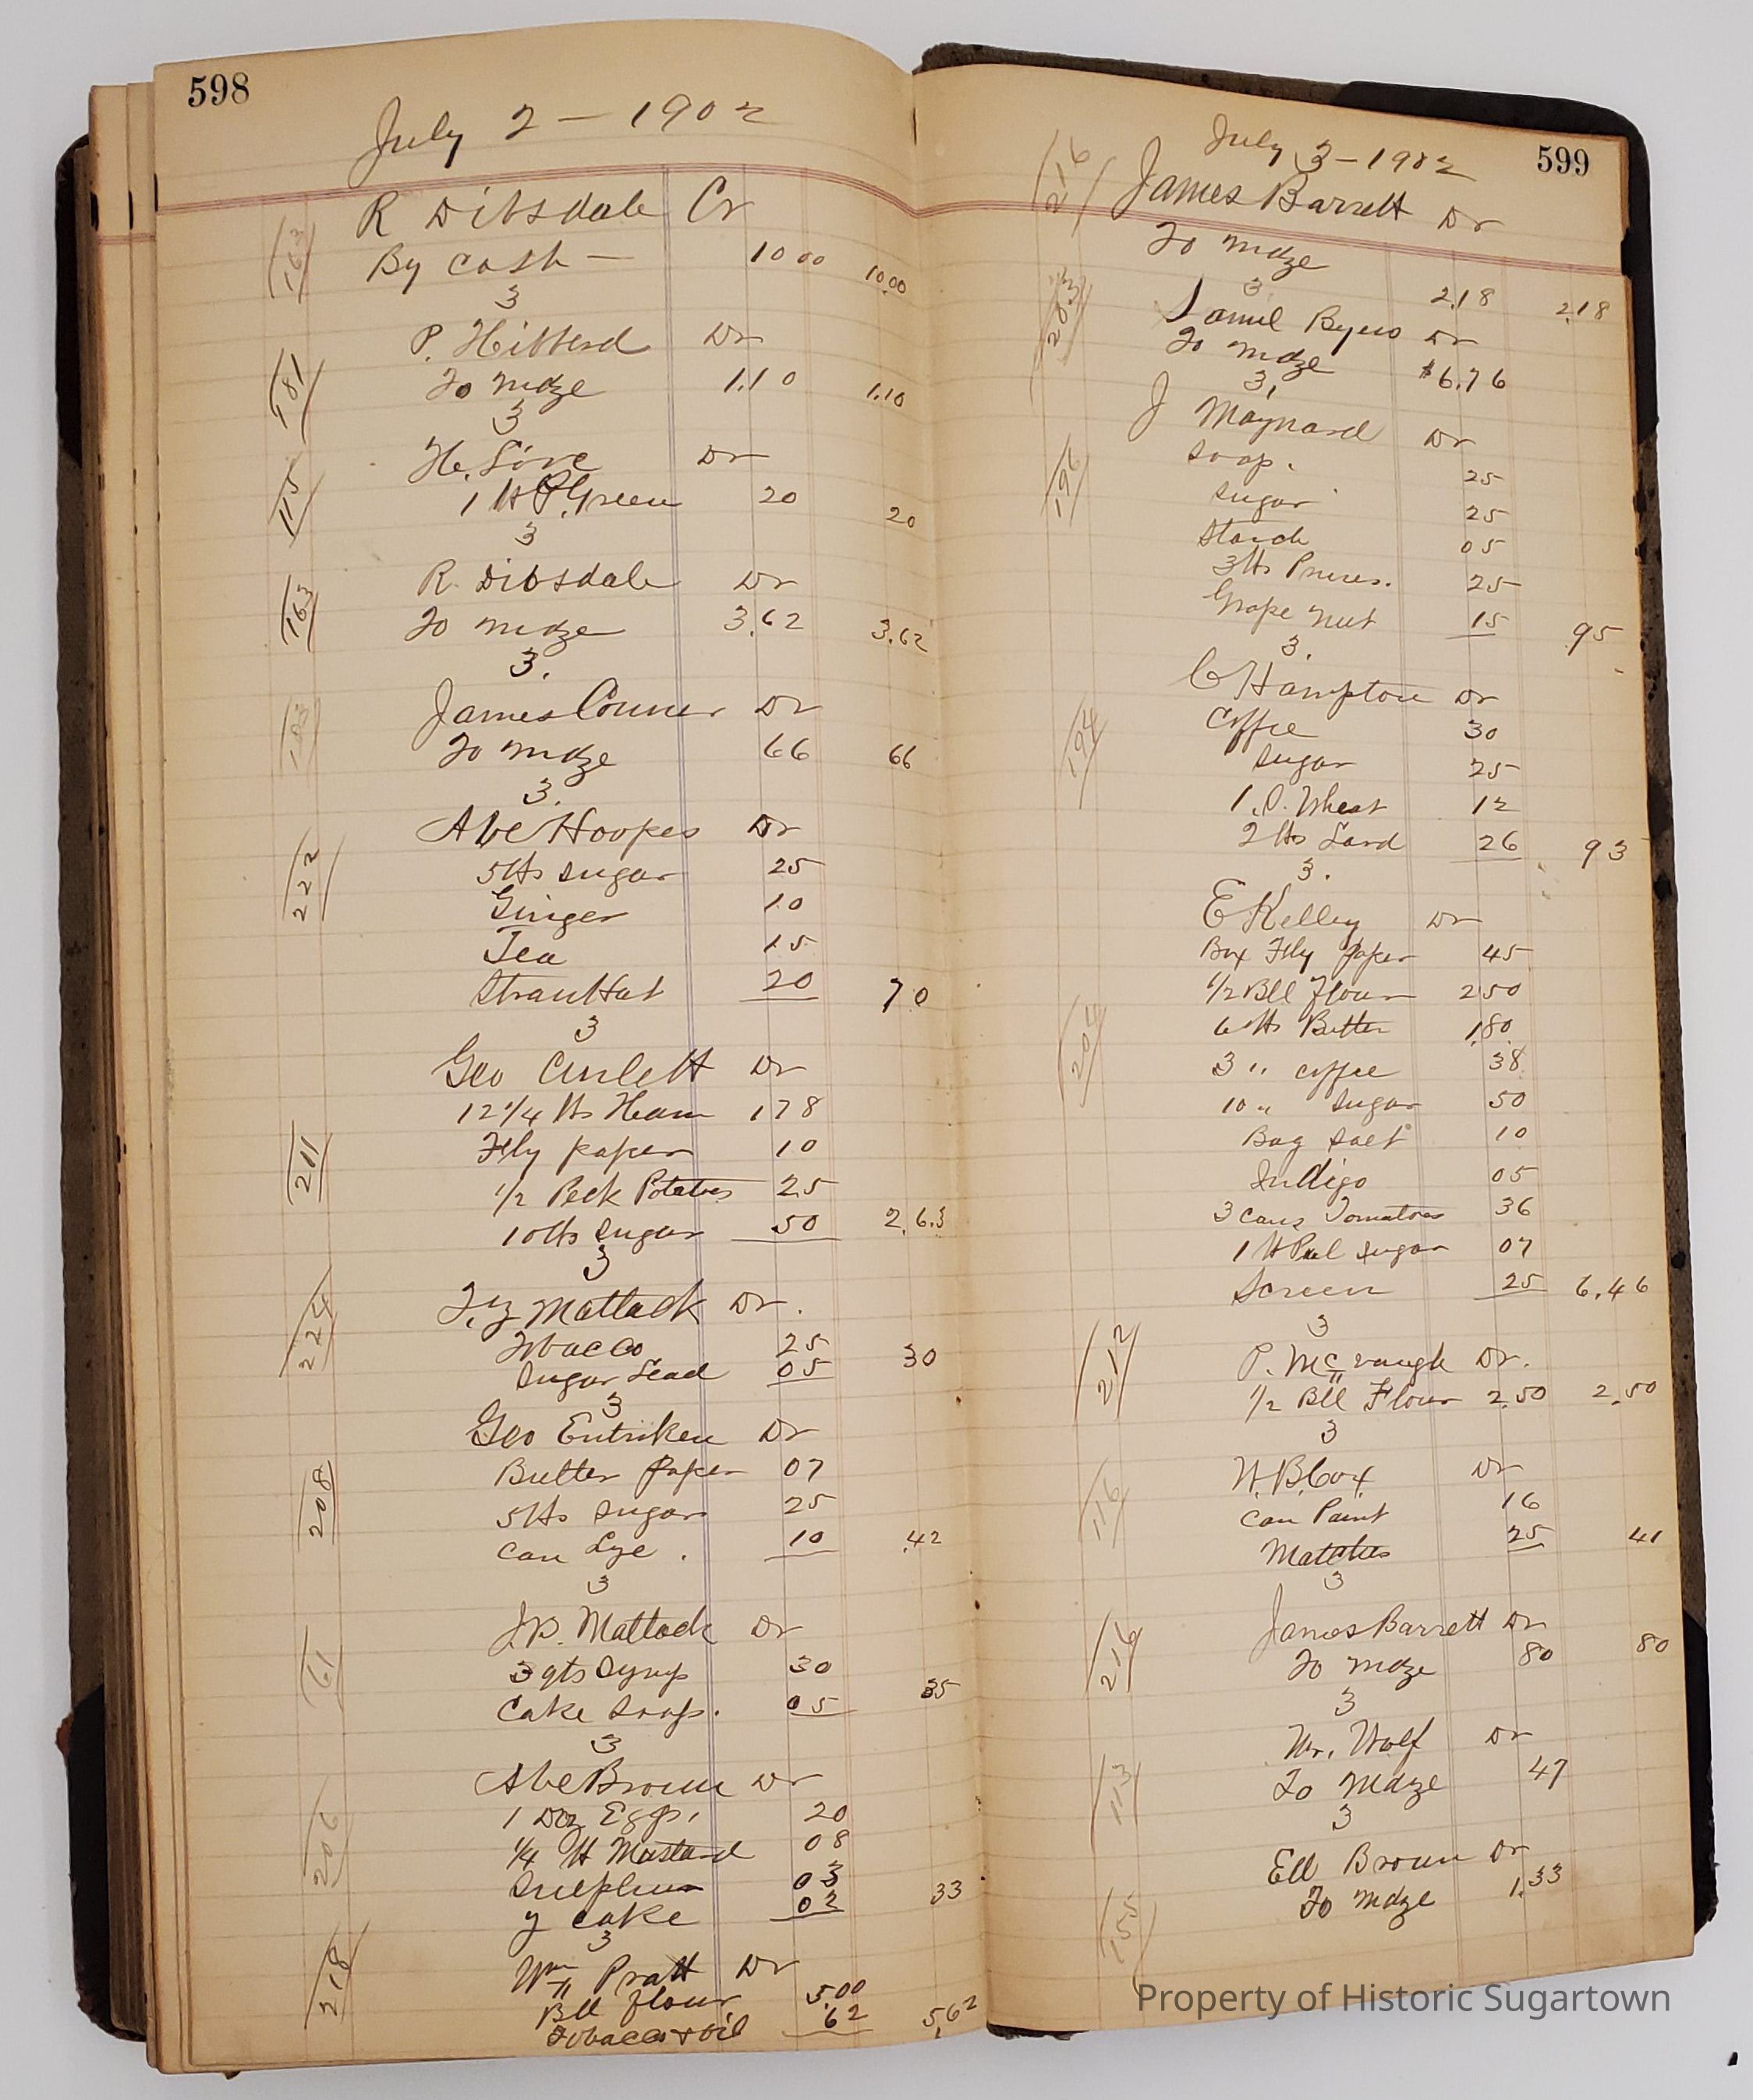 598
July 2 – 1902
163
R Dibsdale Cr
By Cash — 10 00 10.00
3
P. Hibberd Dr
181
To mdze 1.10 1.10
3
H. Love Dr
115
1 lb P. Green 20 20
3
R. Dibsdale Dr
163
To mdze 3.62 3.62
3.
James Conner Dr
To mdze 66 66
3.
Abe Hoopes Dr
222
5 lbs sugar 25
Ginger 10
Tea 15
Straw Hat 20 70
3
Geo Dr
12 1/4 lbs Ham 178
211
Fly paper 10
1/2 Peck Potatoes 25
10 lbs sugar 50 2.63
3
Mattack Dr.
224
Tobacco 25 30
Sugar Lead 05
3
Geo Entriken Dr
208
Butter paper 07
5 lbs sugar 25
Can Lye . 10 .42
3
J.P. Mattack Dr
61
3 qts Syrup 30
Cake Soap. 05 35
3
Abe Brown Dr
206
1 Doz Eggs. 20
1/4 lb Mustard 08
Sulphur 03
y cake 02 33
3
218
Wm Pratt Dr
Bll flour 5.00
Tobacco & oil 62 5.62
July 3 – 1902
599
216
James Barrett Dr
To mdze
2.18 2.18
3
203
Samuel Byers Dr
To mdze $6.76
3,
J Maynard Dr
196
Soap. 25
Sugar 25
Starch 05
3 lbs Prunes. 25
Grape nut 15 95
3.
C Hampton Dr
194
Coffee 30
Sugar 25
1. P. Wheat 12
2 lbs Lard 26 93
3.
E Kelley Dr
204
Box Fly paper 45
1/2 Bll flour 250
6 lbs Butter 1.80
3 " coffee 38
10 " sugar 50
Bag salt 10
Indigo 05
3 cans Tomatoes 36
1 lb Pul sugar 07
Screen 25 6.46
3
212
P. McVaugh Dr.
1/2 Bll Flour 2.50 2.50
3
116
W. B. Cox Dr
Can Paint 16
Matches 25 41
3
216
James Barrett Dr
To mdze 80 80
3
113
Mr. Wolf Dr
To Mdze 47
3
155
Ell Brown Dr
To mdze 1.33
Property of Historic Sugartown